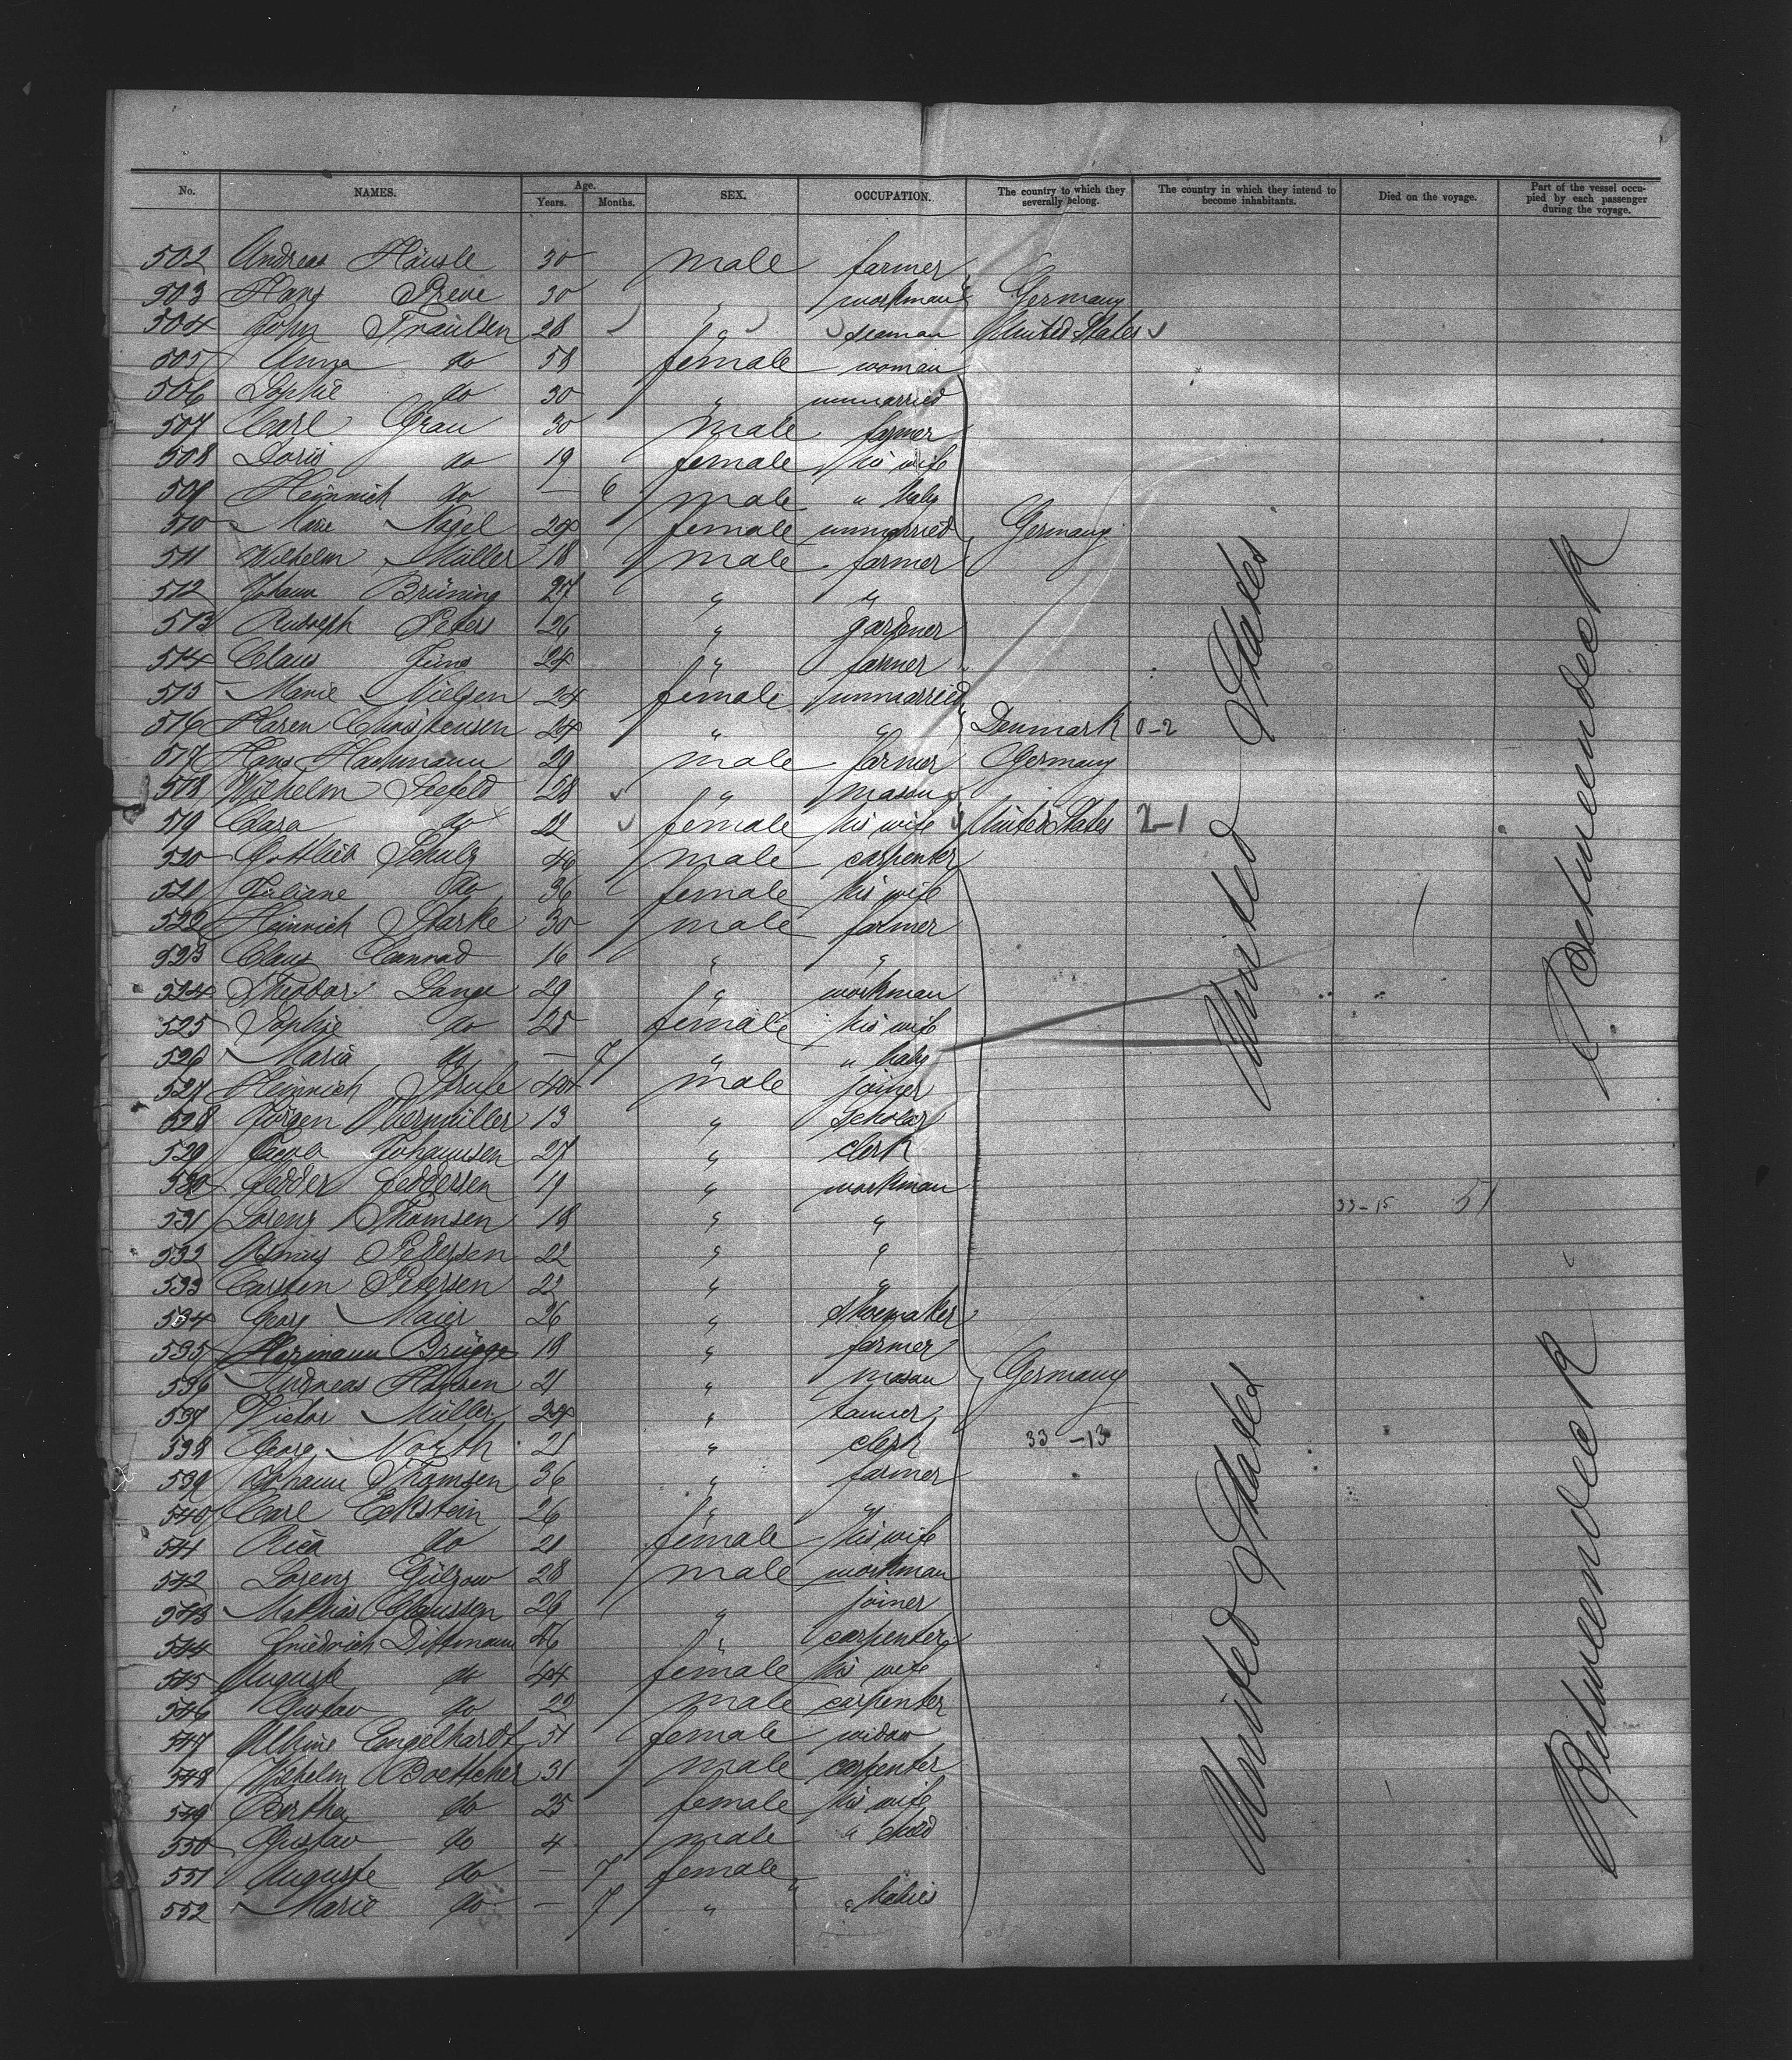 No. NAMES. Age. Years. Months. SEX. OCCUPATION. The country to which they severally belong. The country in which they intend to become inhabitants. Died on the voyage. Part of the vessel occupied by each passenger during the voyage.
502 Andreas Häusle 30 male farmer
503 Hans Preve 30 " workman " Germany
504 John Traulsen 28 " seaman United States
505 Anna do 58 female woman
506 Sophie do 30 " unmarried
507 Carl Grau 30 male farmer
508 Doris do 19 female his wife
509 Heinrich do — 6 male " baby
510 Marie Nagel 24 female unmarried Germany
511 Wilhelm Müller 18 male farmer
512 Johann Brüning 27 " "
513 Rudolph Peters 26 " gardner
514 Claus Jüns 24 " farmer
515 Marie Nielsen 24 female unmarried
516 Karen Christensen 24 " " " Denmark 0-2
517 Hans Hachmann 29 male farmer Germany
518 Wilhelm Seefeld 28 " mason
519 Clara do 22 female his wife " United States 2-1
520 Gottlieb Schulz 46 male carpenter
521 Juliane do 36 female his wife
522 Heinrich Starke 30 male farmer
523 Claus Conrad 16 " "
524 Theodor Lange 29 " workman
525 Sophie do 25 female his wife
526 Maria do — 7 " " baby
527 Heinrich Strufe 44 male joiner
528 Jürgen Obermüller 13 " scholar
529 Jacob Johannsen 27 " clerk
530 Fedder Feddersen 19 " workman
531 Lorenz Thomsen 18 " " 33-15 51
532 Asmus Petersen 22 " "
533 Carsten Petersen 22 " "
534 Georg Maier 26 " shoemaker
535 Hermann Brügge 19 " farmer
536 Andreas Hansen 21 " mason Germany
537 Victor Müller 24 " tanner
538 Georg North 21 " clerk 33-13
539 Johann Thomsen 36 " farmer
540 Carl Eckstein 26 " "
541 Rica do 21 female his wife
542 Lorenz Gülzow 28 male workman
543 Mathias Claussen 26 " joiner
544 Friedrich Dittmann 46 " carpenter
545 Auguste do 44 female his wife
546 Gustav do 22 male carpenter
547 Albine Engelhardt 51 female widow
548 Wilhelm Boettcher 31 male carpenter
549 Bertha do 25 female his wife
550 Gustav do 4 male " child
551 Auguste do — 7 female "
552 Marie do — 7 " " babies
United States
Betweendeck
United States
Betweendeck